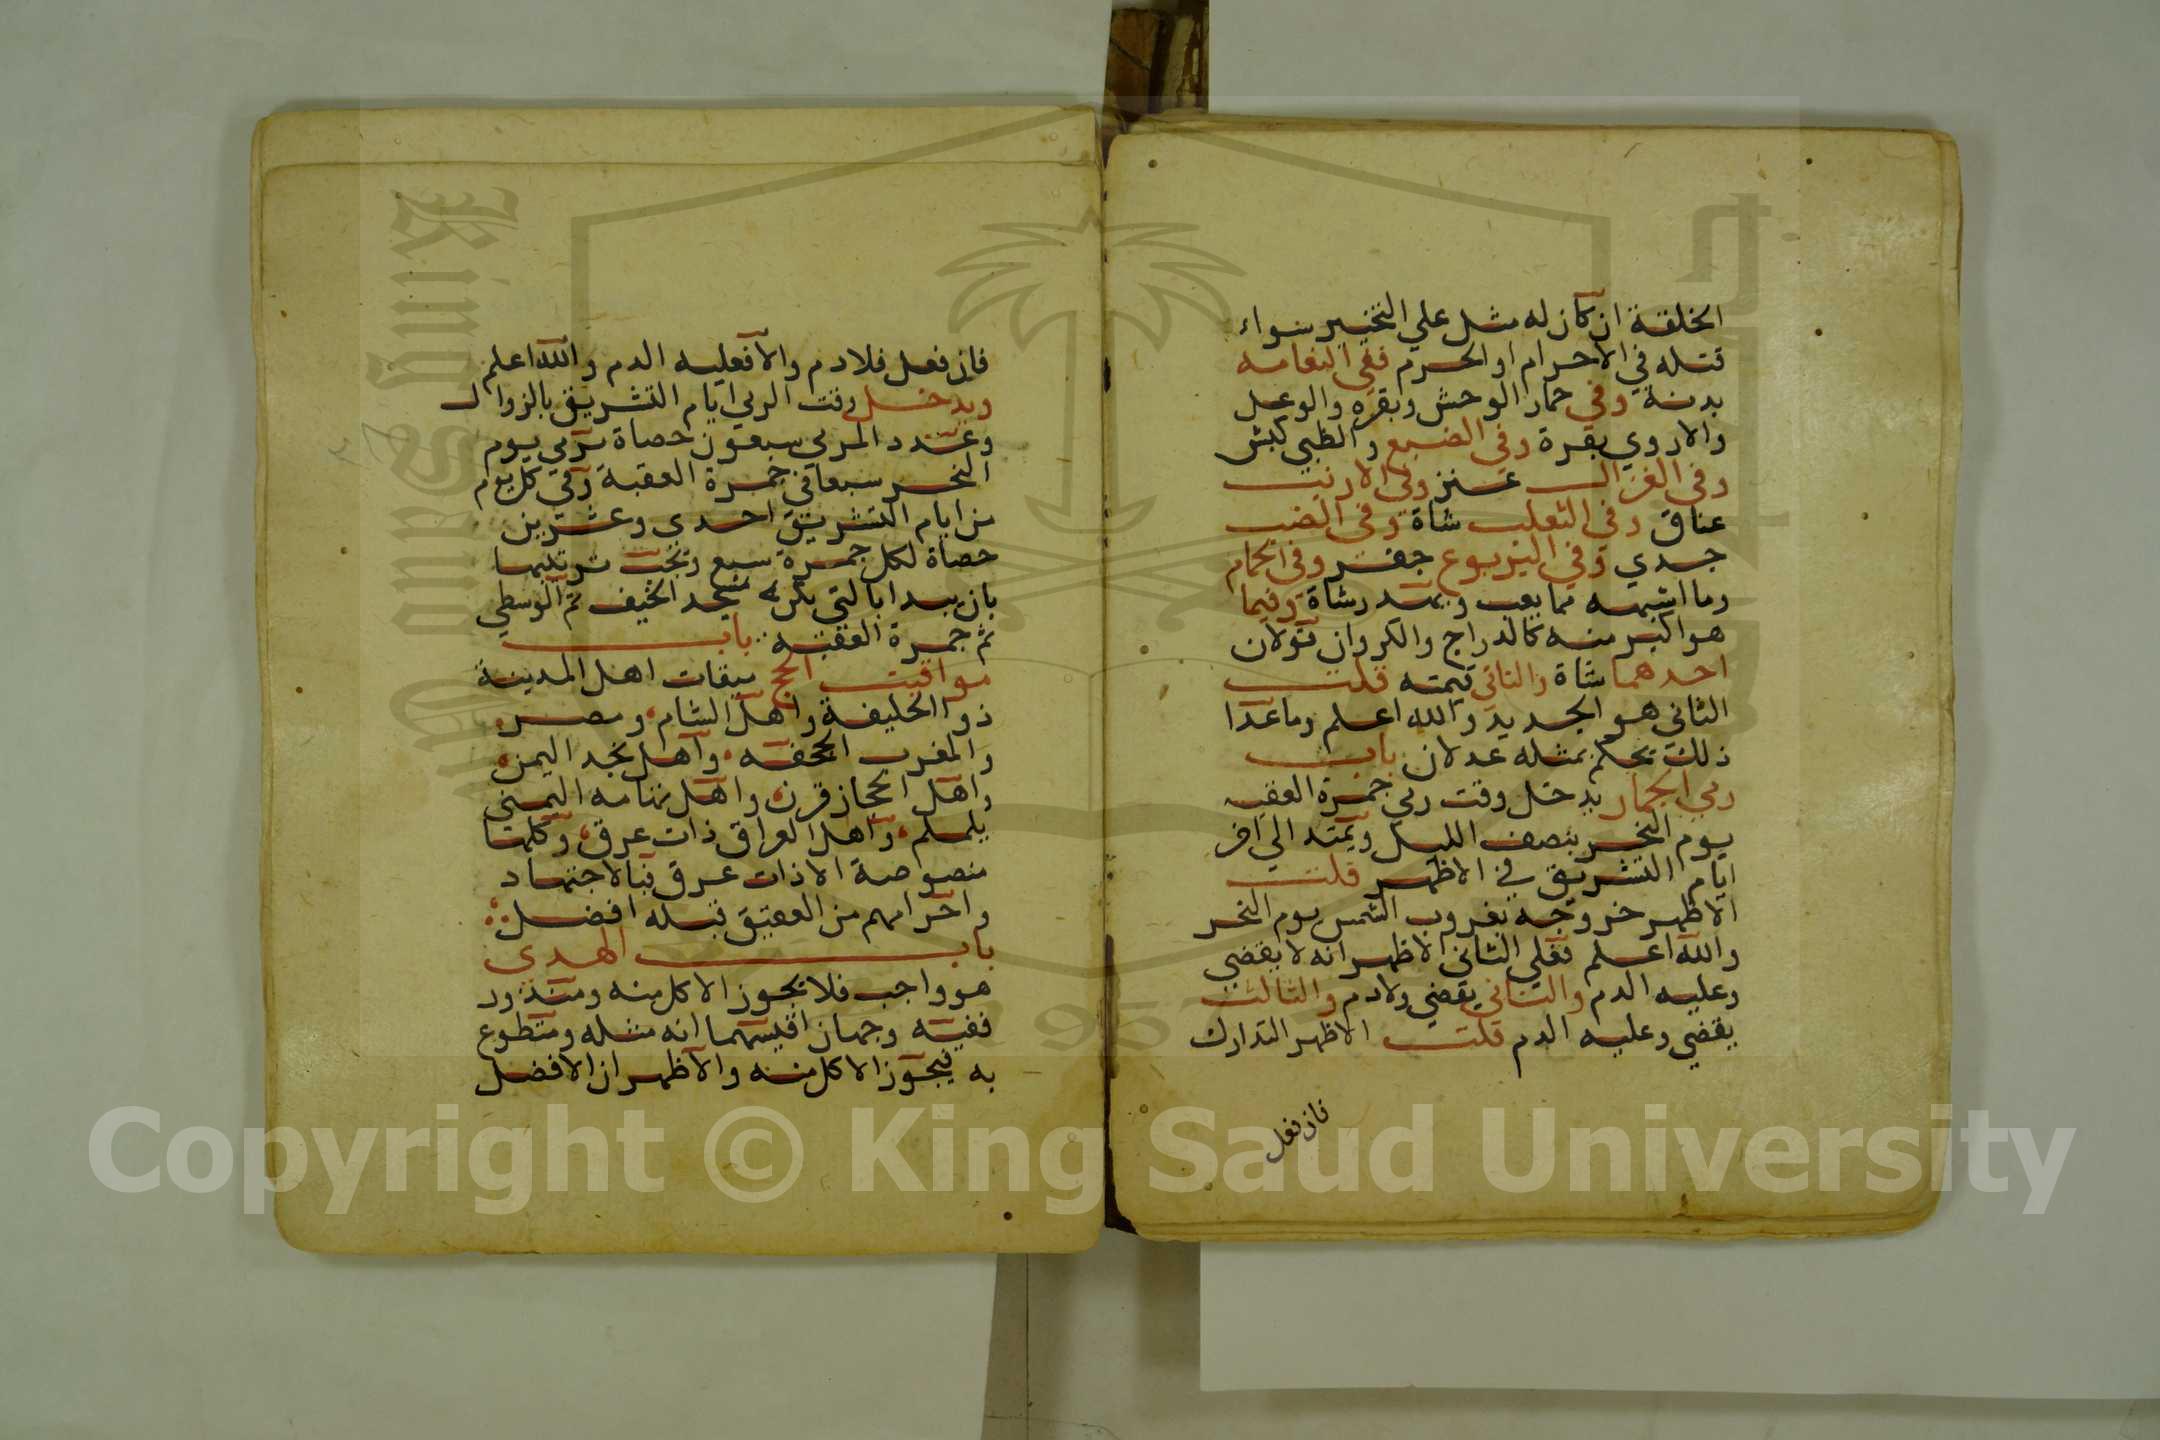 الخلقة ان كان له مثل علي التخيير سواء
قتله في الاحرام او الحرم ففي النعامه
بدنة وفي حمار الوحش وبقره والوعل
والاروي بقرة وفي الضبع والظبي كبش
وفي الغزال عنز وفي الارنب
عناق وفي الثعلب شاة وفي الضب
جدي وفي اليربوع جفر وفي الحمام
وما اشبهه مما يعب ويهدر شاة وفيما
هو اكبر منه كالدراج والكروان قولان
احدهما شاة والثاني قيمته قلت
الثاني هو الجديد والله اعلم وما عدا
ذلك يحكم بمثله عدلان باب
رمي الجمار يدخل وقت رمي جمرة العقبه
يوم النحر بنصف الليل ويمتد الي اخر
ايام التشريق في الاظهر قلت
الاظهر خروجه بغروب الشمس يوم النحر
والله اعلم فعلي الثاني الاظهر انه لا يقضي
وعليه الدم والثاني يقضي ولا دم والثالث
يقضي وعليه الدم قلت الاظهر التدارك
فان فعل
فان فعل فلا دم والا فعليه الدم والله اعلم
ويدخل وقت الرمي ايام التشريق بالزوال
وعدد المرمي سبعون حصاة يرمي يوم
النحر سبعا في جمرة العقبة وفي كل يوم
من ايام التشريق احدي وعشرين
حصاة لكل جمرة سبع ويجب ترتيبها
بان يبدا بالتي بكرة مسجد الخيف ثم الوسطي
ثم جمرة العقبه باب
مواقيت الحج ميقات اهل المدينة
ذو الحليفة واهل الشام ومصر
والمغرب الجحفه واهل نجد اليمن
واهل الحجاز قرن واهل تهامه اليمني
يلملم واهل العراق ذات عرق وكلها
منصوصة الا ذات عرق فبالاجتهاد
واحرامهم من العقيق قبله افضل
باب الهدي
هو واجب فلا يجوز الاكل منه ومنذور
ففيه وجهان اقيسهما انه مثله ومتطوع
به فيجوز الاكل منه والاظهر ان الافضل
King Saud University
1957
Copyright © King Saud University